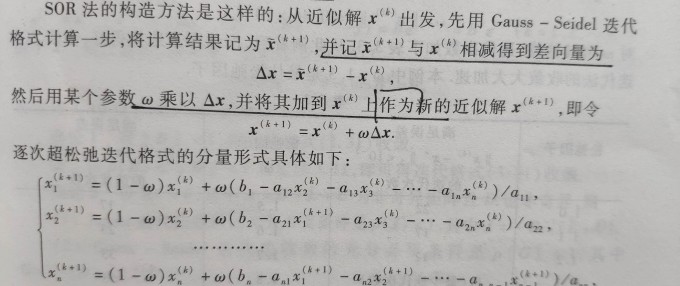 SOR 法的构造方法是这样的:从近似解 x^(k) 出发,先用 Gauss-Seidel 迭代
格式计算一步,将计算结果记为 x̄^(k+1),并记 x̄^(k+1) 与 x^(k) 相减得到差向量为
Δx = x̄^(k+1) - x^(k),
然后用某个参数 ω 乘以 Δx,并将其加到 x^(k) 上作为新的近似解 x^(k+1),即令
x^(k+1) = x^(k) + ωΔx.
逐次超松弛迭代格式的分量形式具体如下:
x₁^(k+1) = (1-ω)x₁^(k) + ω(b₁ - a₁₂x₂^(k) - a₁₃x₃^(k) - … - a₁ₙxₙ^(k))/a₁₁,
x₂^(k+1) = (1-ω)x₂^(k) + ω(b₂ - a₂₁x₁^(k+1) - a₂₃x₃^(k) - … - a₂ₙxₙ^(k))/a₂₂,
…………
xₙ^(k+1) = (1-ω)xₙ^(k) + ω(bₙ - aₙ₁x₁^(k+1) - aₙ₂x₂^(k+1) - … -